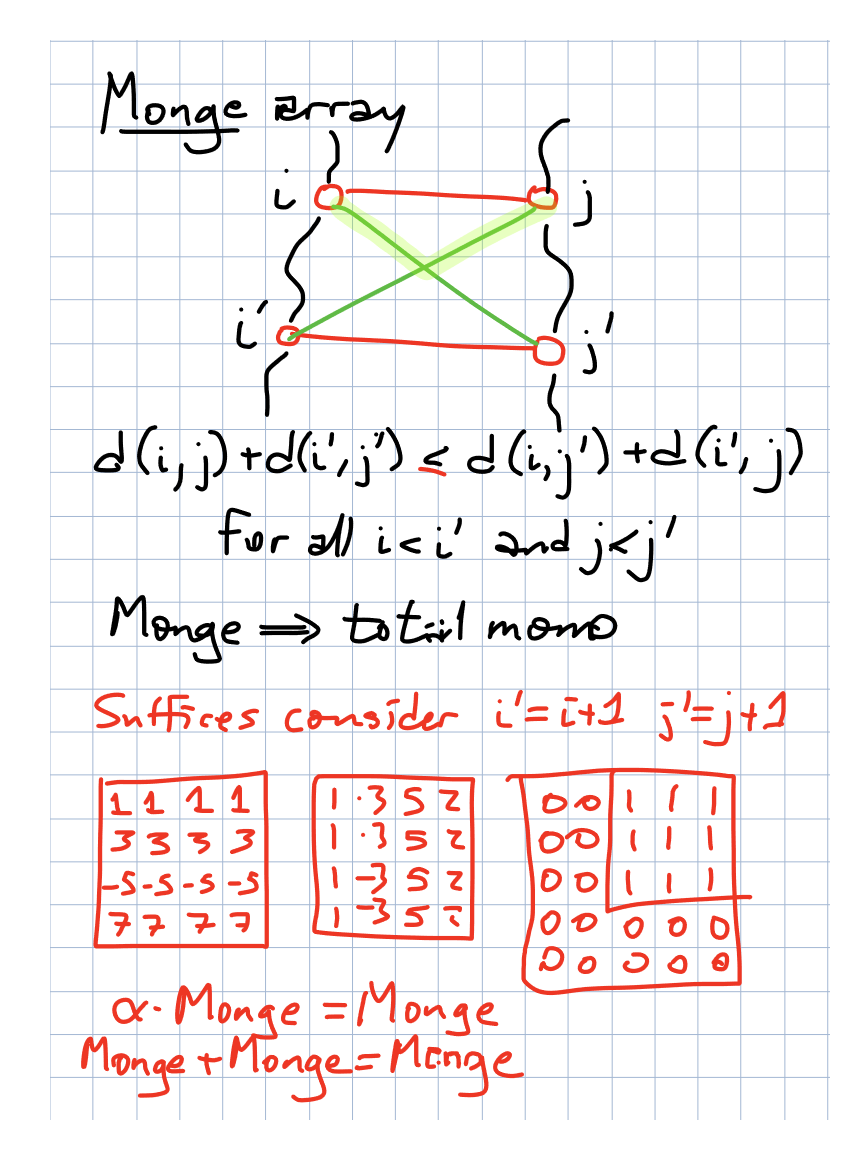 Monge array
i j
i' j'
d(i,j)+d(i',j') ≤ d(i,j')+d(i',j)
for all i<i' and j<j'
Monge ⟹ total mono
Suffices consider i'=i+1 j'=j+1
1 1 1 1
3 3 3 3
-5 -5 -5 -5
7 7 7 7
1 -3 5 2
1 -3 5 2
1 -3 5 2
1 -3 5 2
0 0 1 1 1
0 0 1 1 1
0 0 1 1 1
0 0 0 0 0
0 0 0 0 0
α· Monge = Monge
Monge + Monge = Monge